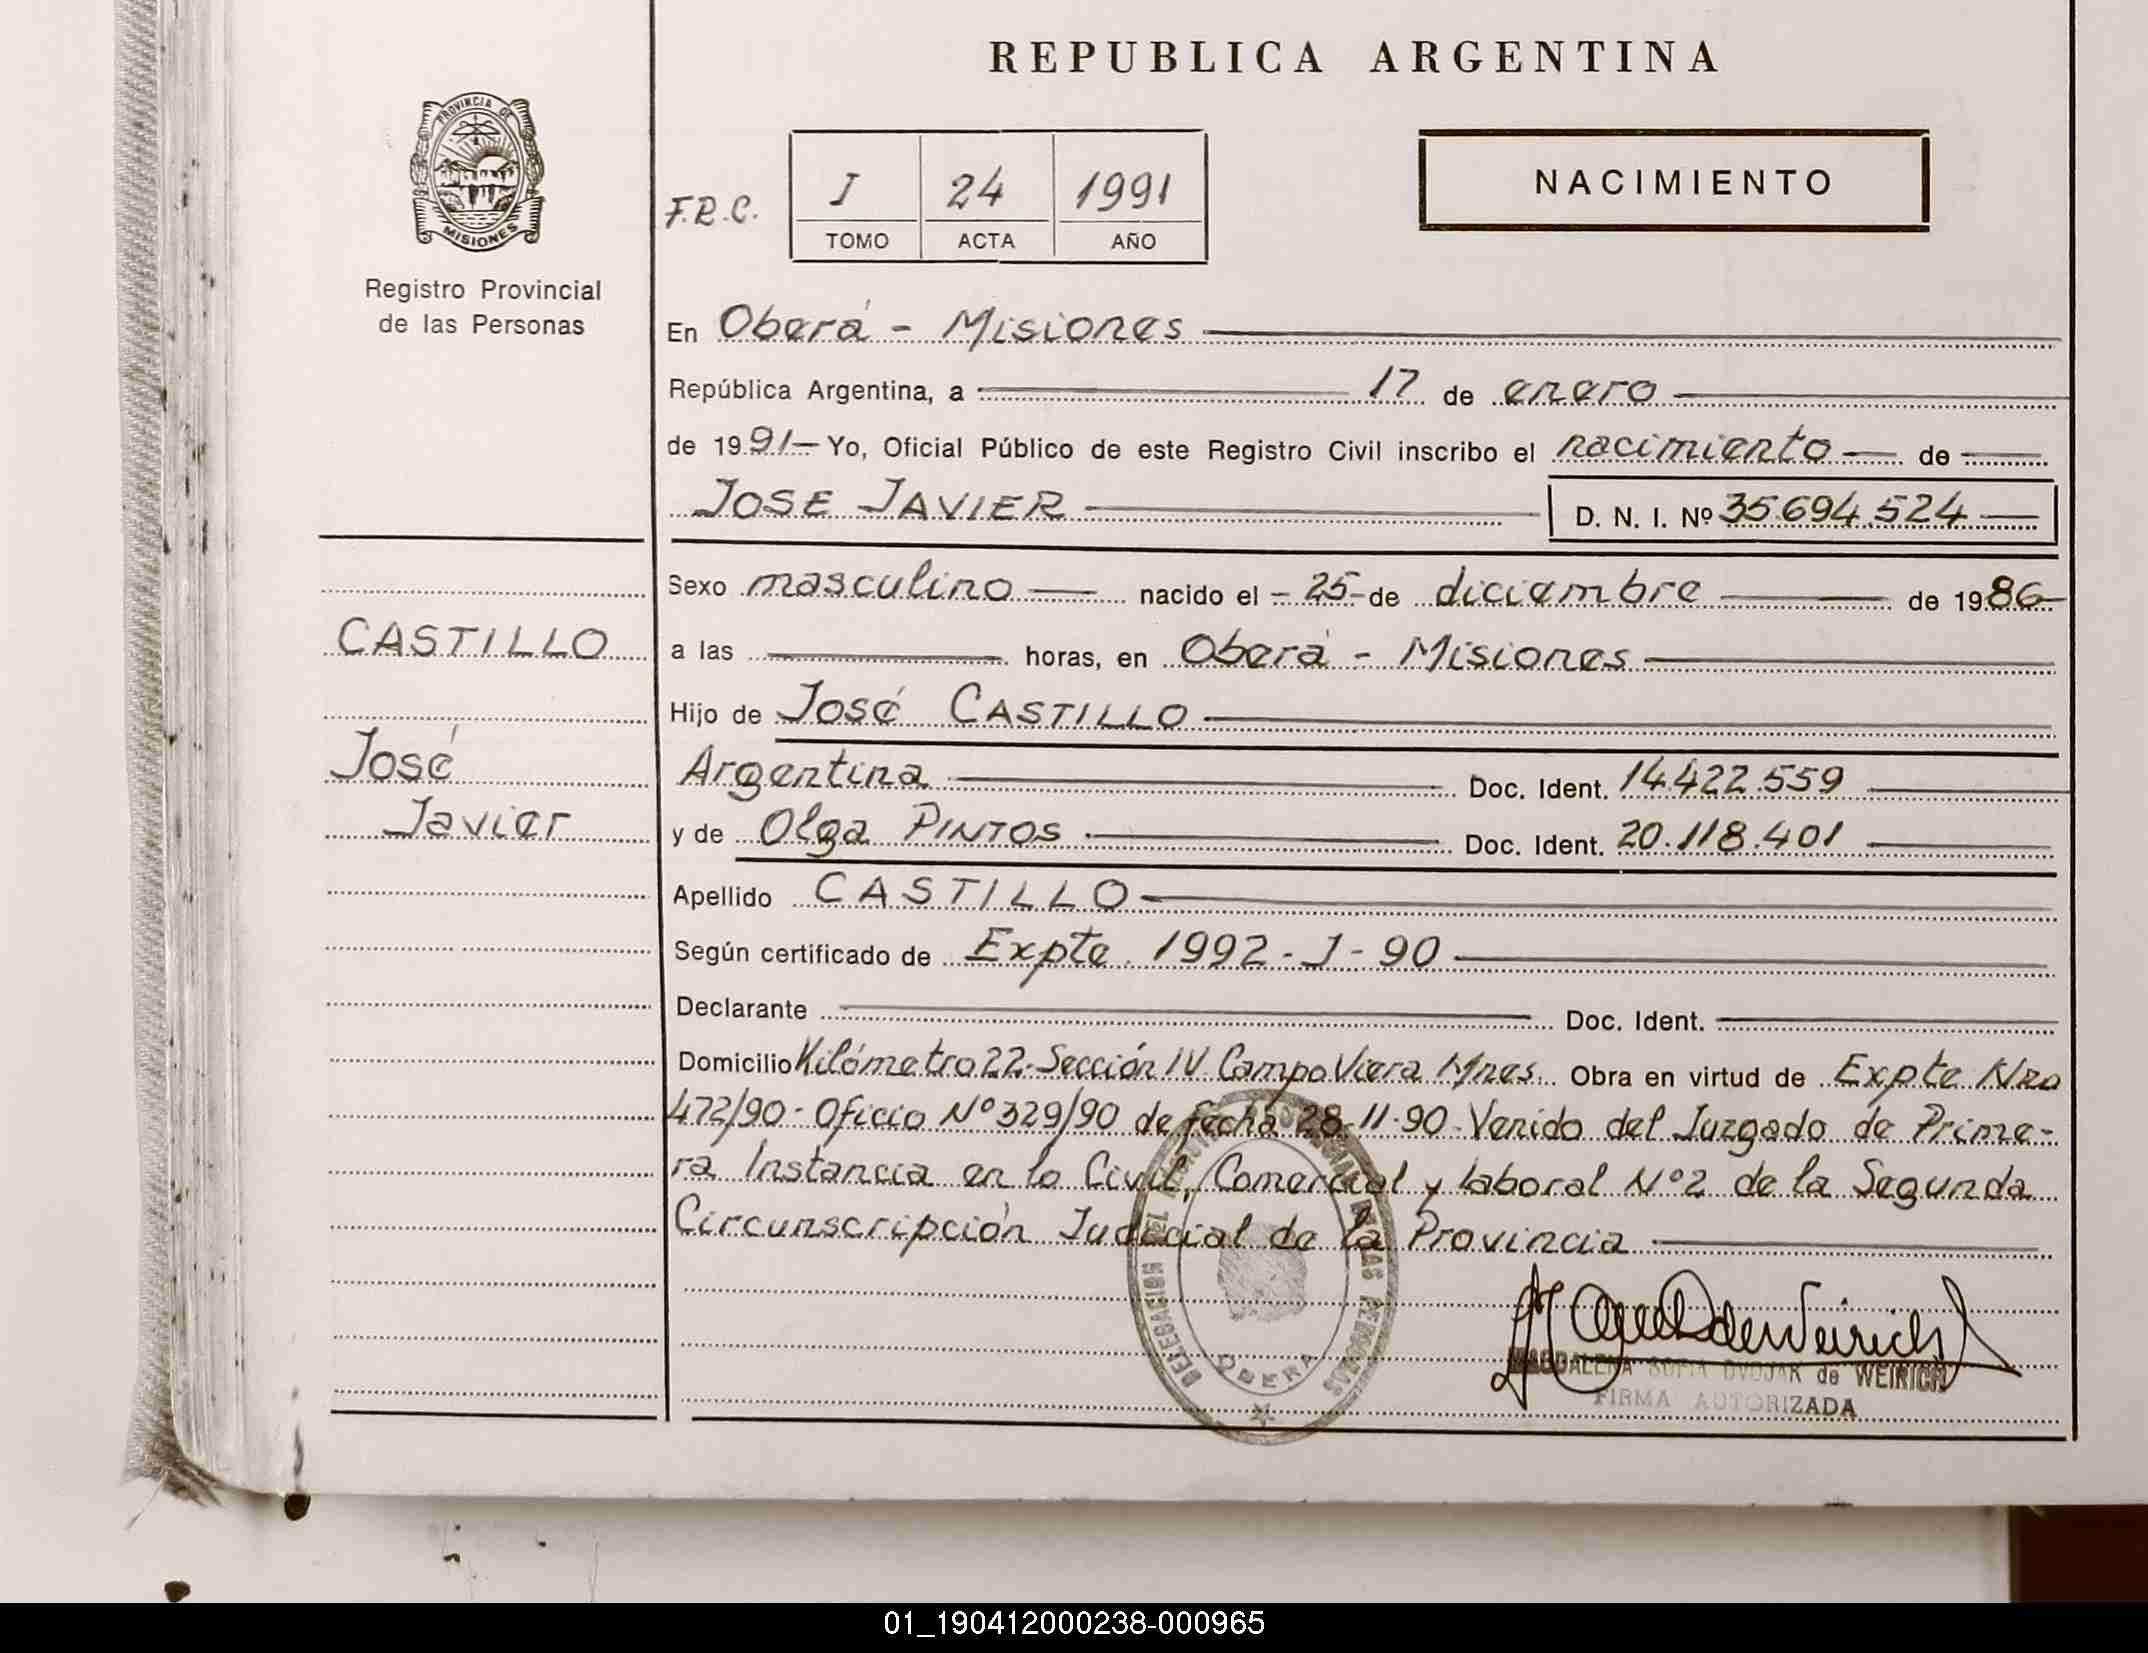 REPUBLICA ARGENTINA
PROVINCIA DE
MISIONES
Registro Provincial
de las Personas
F.R.C.
I 24 1991
TOMO ACTA AÑO
NACIMIENTO
En Oberá - Misiones
República Argentina, a 17 de enero
de 1991 Yo, Oficial Público de este Registro Civil inscribo el nacimiento de
JOSE JAVIER D. N. I. Nº 35.694.524
Sexo masculino nacido el - 25 - de diciembre de 1986
a las horas, en Oberá - Misiones
Hijo de José CASTILLO
Argentina Doc. Ident. 14.422.559
y de Olga PINTOS Doc. Ident. 20.118.401
Apellido CASTILLO
Según certificado de Expte. 1992-J-90
Declarante Doc. Ident.
Domicilio Kilómetro 22-Sección IV Campo Viera Mnes. Obra en virtud de Expte Nro
472/90- Oficio Nº 329/90 de fecha 28-11-90- Venido del Juzgado de Prime-
ra Instancia en lo Civil, Comercial y Laboral Nº2 de la Segunda
Circunscripción Judicial de la Provincia
CASTILLO
José
Javier
DELEGACION DEL REGISTRO PROVINCIAL DE LAS PERSONAS
OBERA
MAGDALENA SOFIA DVOJAK de WEIRICH
FIRMA AUTORIZADA
01_190412000238-000965